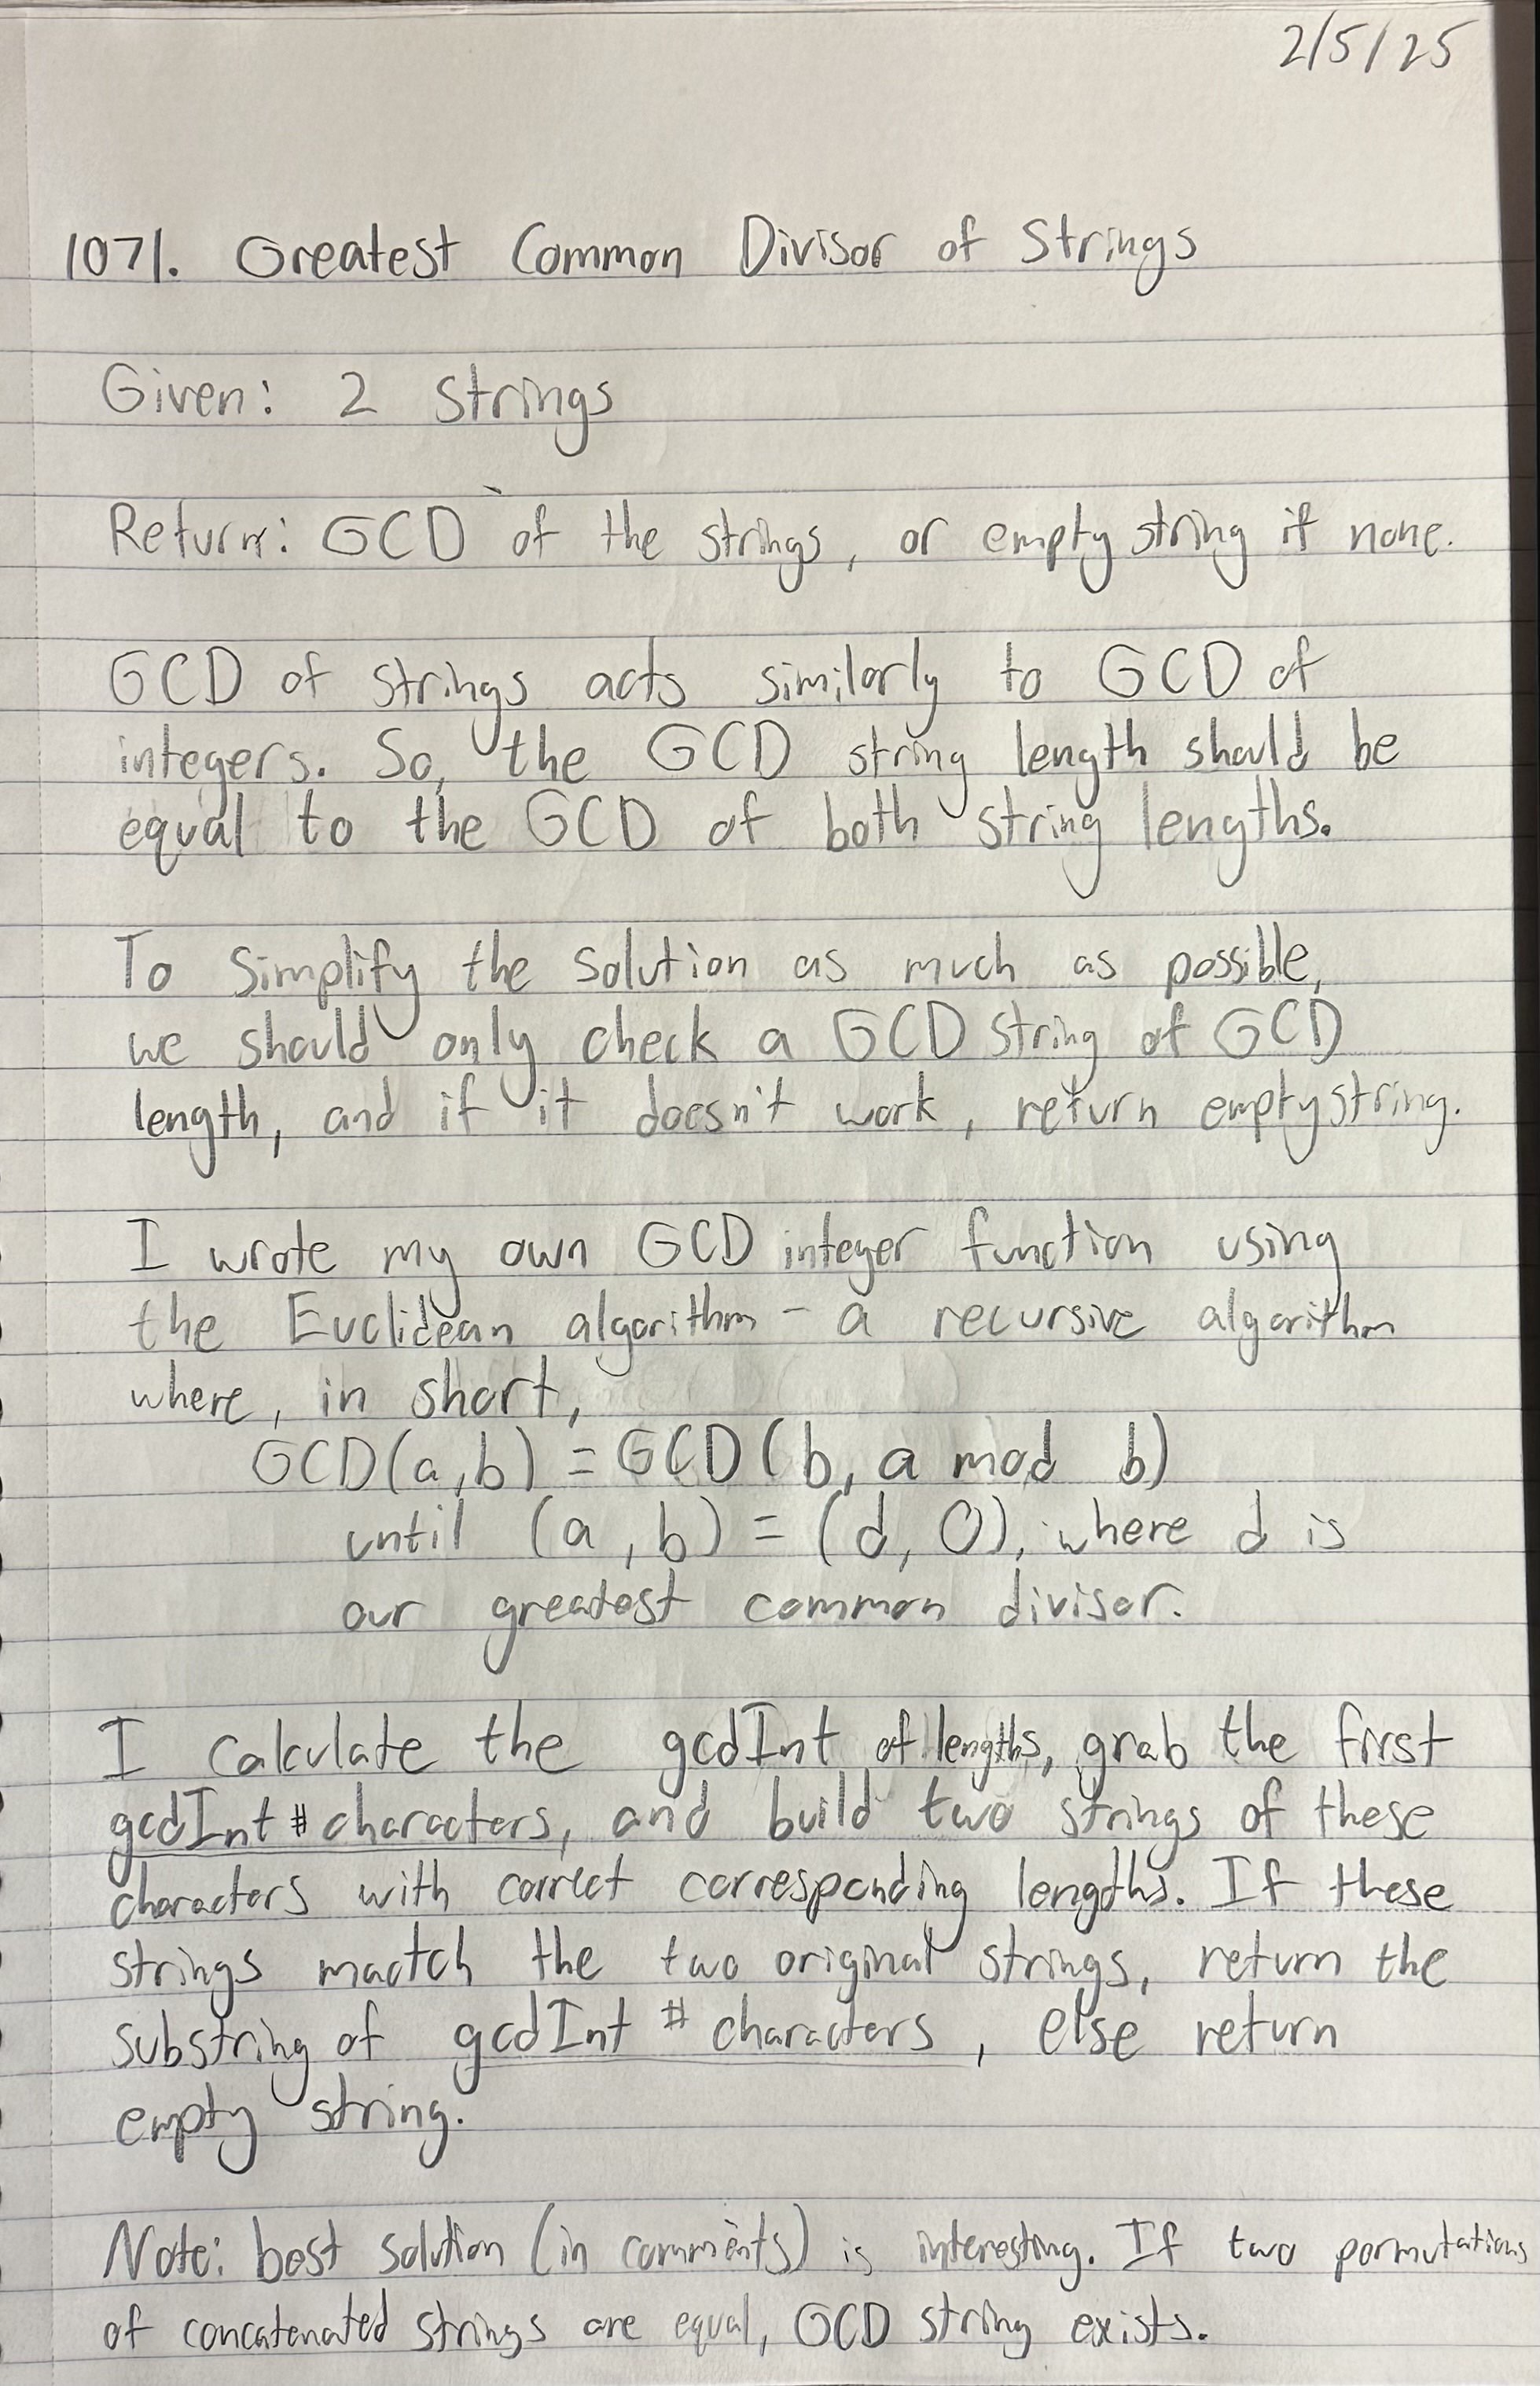 2/5/25
1071. Greatest Common Divisor of Strings
Given: 2 strings
Return: GCD of the strings, or empty string if none.
GCD of strings acts similarly to GCD of
integers. So, the GCD string length should be
equal to the GCD of both string lengths.
To simplify the solution as much as possible,
we should only check a GCD string of GCD
length, and if it doesn't work, return empty string.
I wrote my own GCD integer function using
the Euclidean algorithm - a recursive algorithm
where, in short,
GCD(a,b) = GCD(b, a mod b)
until (a,b) = (d, 0), where d is
our greatest common divisor.
I calculate the gcdInt of lengths, grab the first
gcdInt # characters, and build two strings of these
characters with correct corresponding lengths. If these
strings maatch the two original strings, return the
substring of gcdInt # characters, else return
empty string.
Note: best solution (in comments) is interesting. If two permutations
of concatenated strings are equal, GCD string exists.